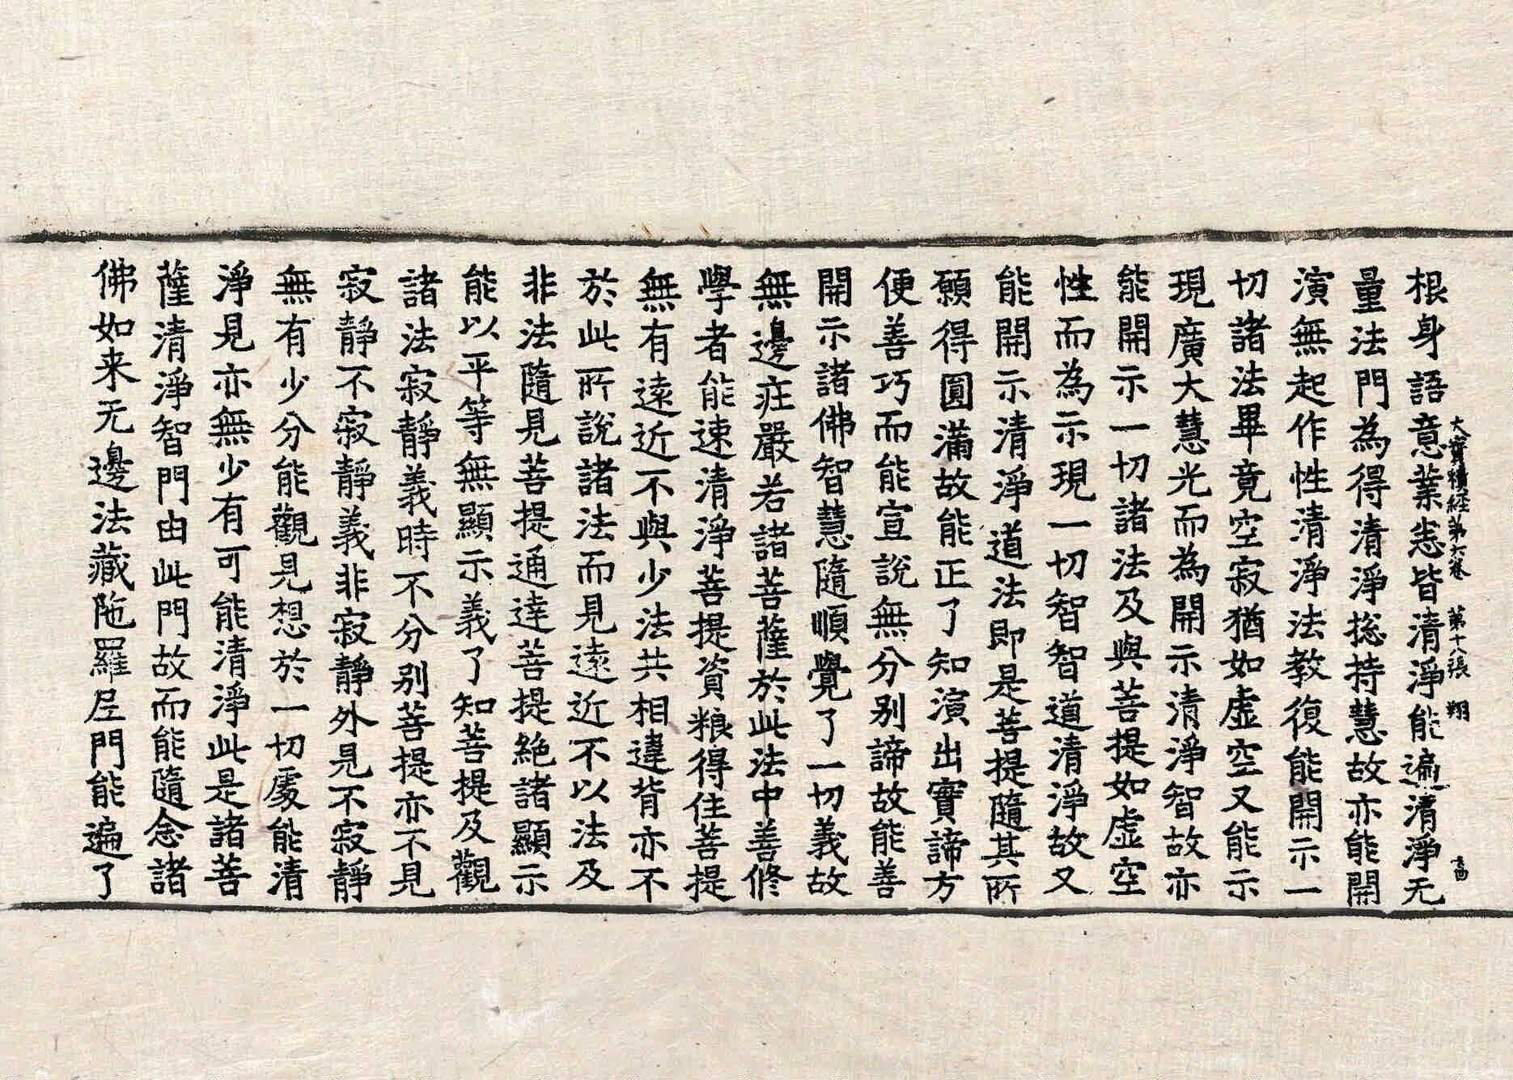 大寶積經第六卷 第十八張 翔
根身語意業悉皆清淨能遍清淨无
量法門為得清淨捴持慧故亦能開
演無起作性清淨法教復能開示一
切諸法畢竟空寂猶如虛空又能示
現廣大慧光而為開示清淨智故亦
能開示一切諸法及與菩提如虛空
性而為示現一切智智道清淨故又
能開示清淨道法即是菩提隨其所
願得圓滿故能正了知演出實諦方
便善巧而能宣說無分別諦故能善
開示諸佛智慧隨順覺了一切義故
無邊疘嚴若諸菩薩於此法中善修
學者能速清淨菩提資粮得住菩提
無有遠近不與少法共相違背亦不
於此所說諸法而見遠近不以法及
非法隨見菩提通達菩提絕諸顯示
能以平等無顯示義了知菩提及觀
諸法寂靜義時不分別菩提亦不見
寂靜不寂靜義非寂靜外見不寂靜
無有少分能觀見想於一切處能清
淨見亦無少有可能清淨此是諸菩
薩清淨智門由此門故而能隨念諸
佛如来无邊法藏陁羅尼門能遍了